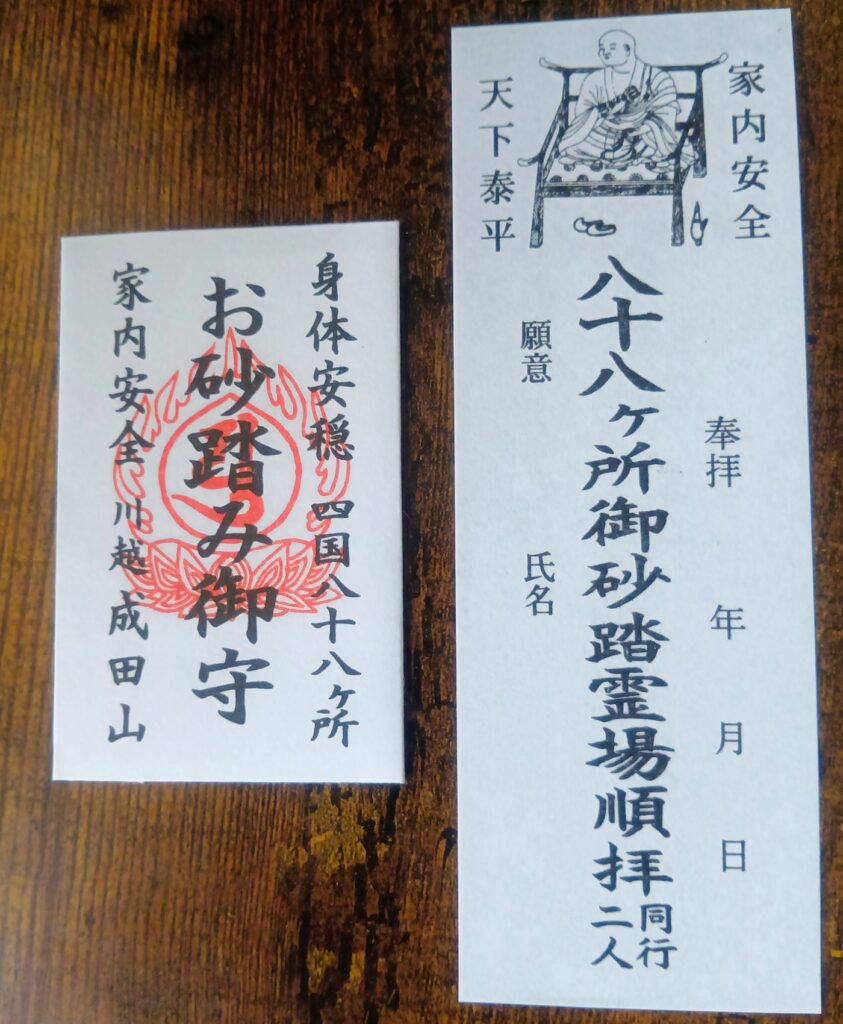 身体安穏 四国八十八ヶ所
お砂踏み御守
家内安全 川越成田山
家内安全
天下泰平
奉拝 年 月 日
八十八ヶ所御砂踏霊場順拝 同行二人
願意 氏名